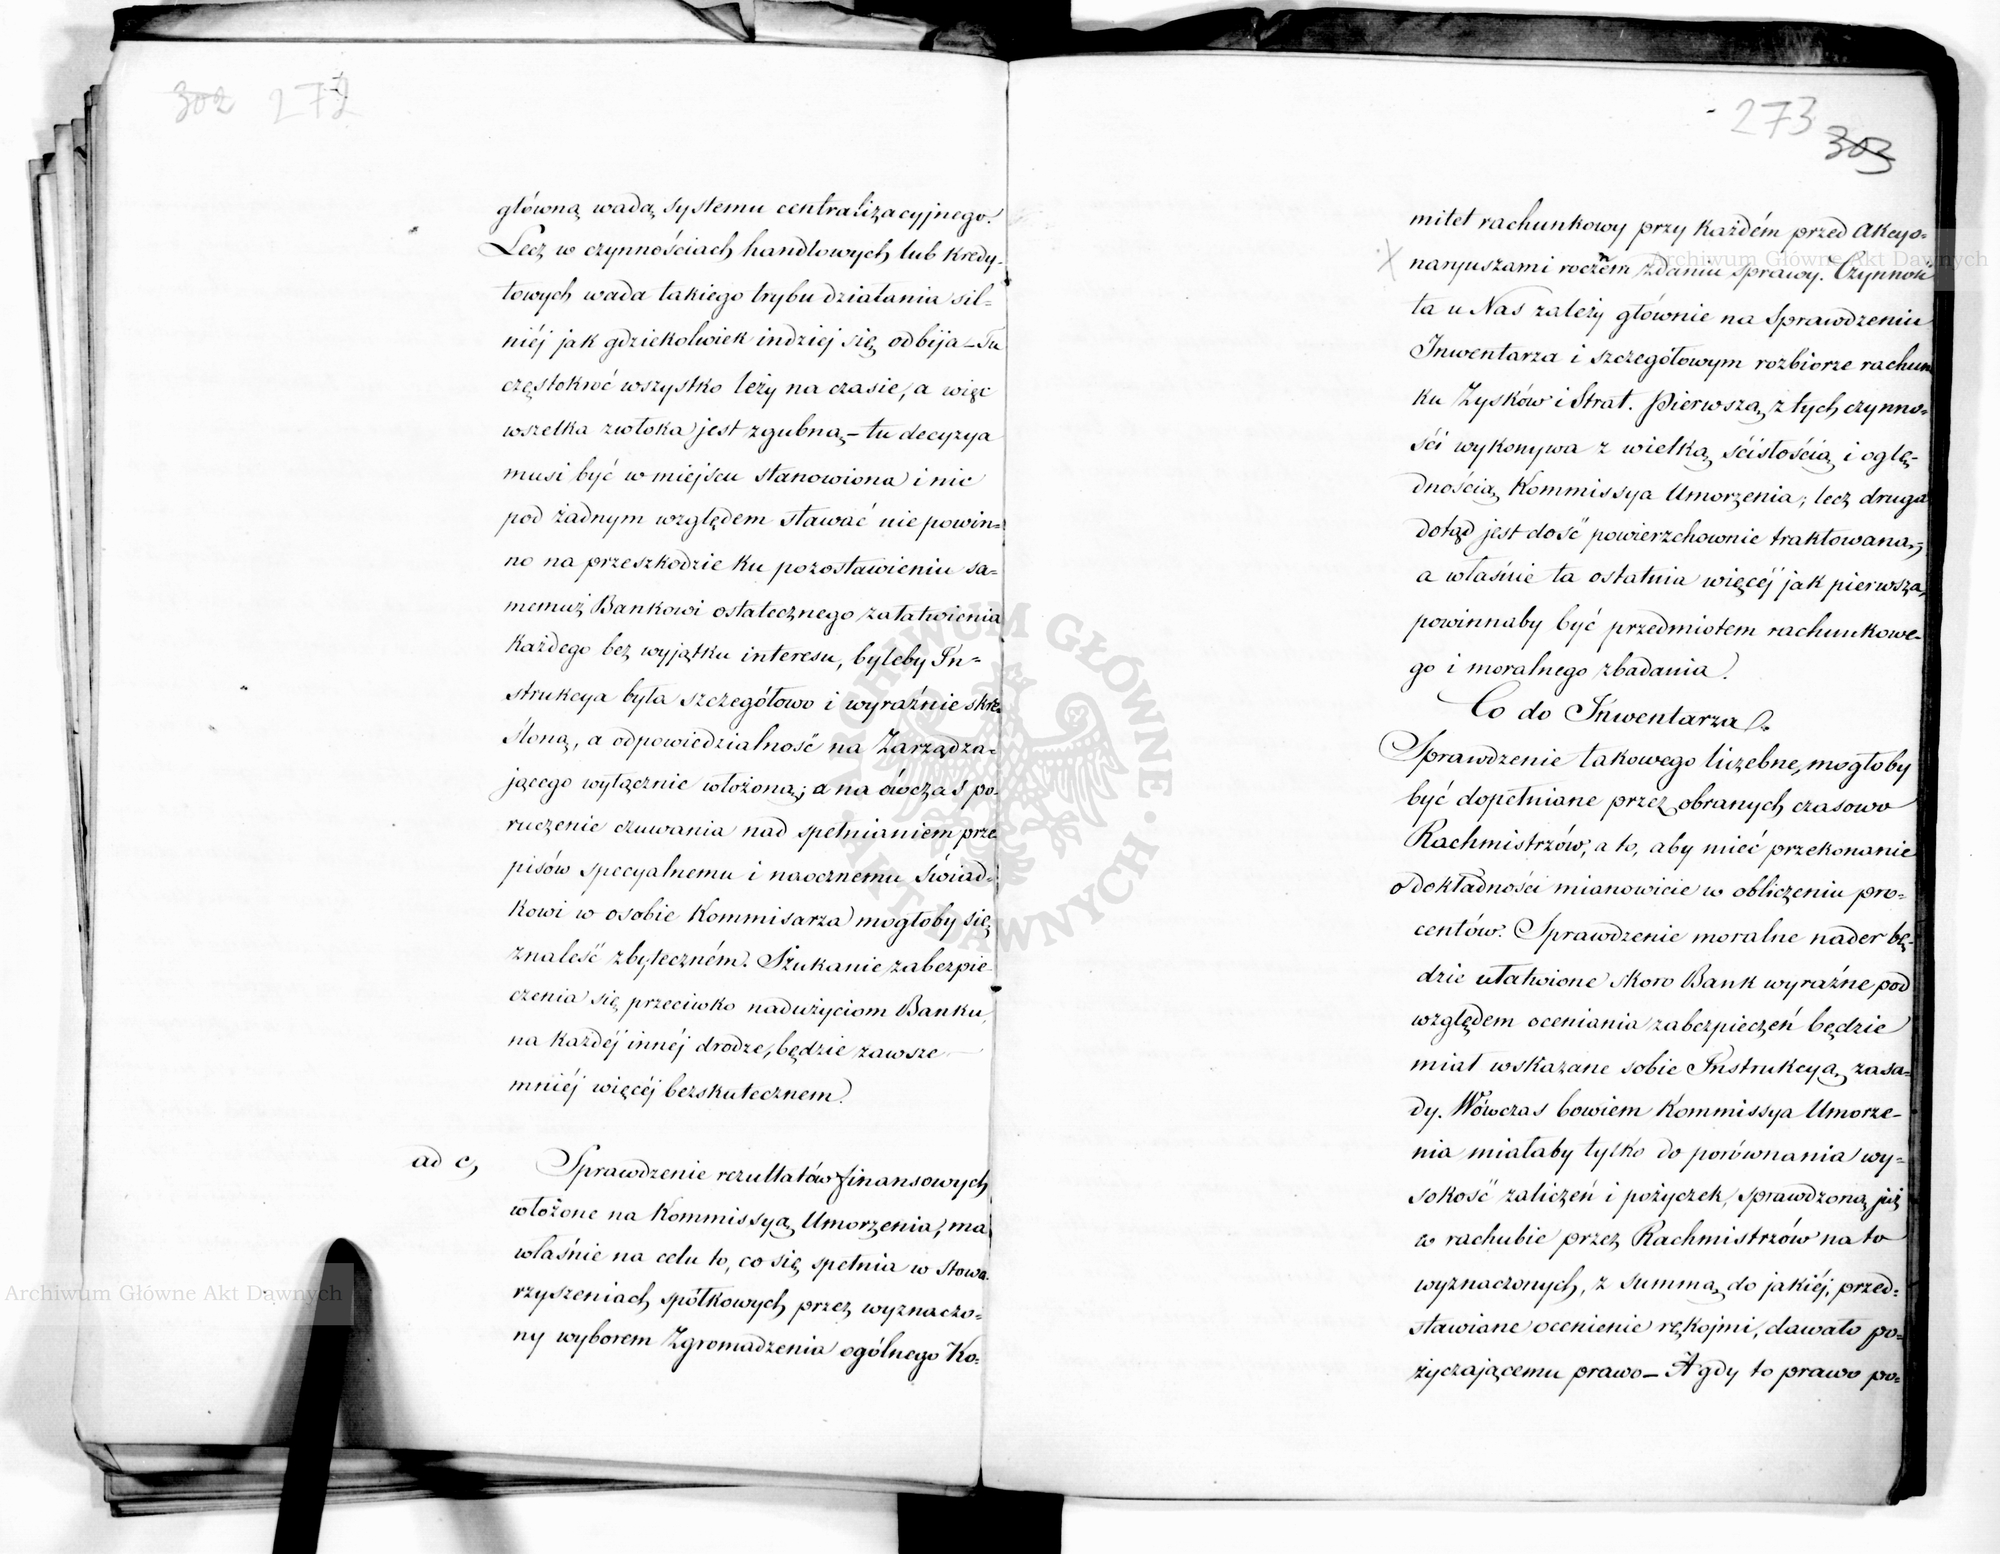 302 272
główną wadą systemu centralizacyjnego.
Lecz w czynnościach handlowych lub kredy-
towych wada takiego trybu działania sil-
niéj jak gdziekolwiek indziej się odbija – Tu
częstokroć wszystko leży na czasie, a więc
wszelka zwłoka jest zgubną – tu decyzya
musi być w miejscu stanowiona i nic
pod żadnym względem stawać nie powin-
no na przeszkodzie ku pozostawieniu sa-
memuż Bankowi ostatecznego załatwienia
każdego bez wyjątku interesu, byleby In-
strukcya była szczegółowo i wyraźnie skre-
śloną, a odpowiedzialność na Zarządza-
jącego wyłącznie włożoną; a na ówczas po-
ruczenie czuwania nad spełnianiem prze
pisów specyalnemu i naocznemu świad-
kowi w osobie Kommisarza mogłoby się
znaleść zbyteczném. Szukanie zabezpie-
czenia się przeciwko nadużyciom Banku,
na każdéj innéj drodze, będzie zawsze
mniéj więcéj bezskutecznem.
ad c, Sprawdzenie rezultatów finansowych
włożone na Kommissyą Umorzenia, ma
właśnie na celu to, co się spełnia w stowa-
rzyszeniach spółkowych przez wyznaczo-
ny wyborem Zgromadzenia ogólnego Ko-
273 303
mitet rachunkowy przy każdém przed Akcyo-
naryuszami roczném zdaniu sprawy. Czynność
ta u Nas zależy głównie na Sprawdzeniu
Inwentarza i szczegółowym rozbiorze rachun
ku Zysków i Strat. Pierwszą z tych czynno-
ści wykonywa z wielką ścisłością i oglę-
dnością Kommissya Umorzenia; lecz druga
dotąd jest dość powierzchownie traktowaną,
a właśnie ta ostatnia więcéj jak pierwsza,
powinnaby być przedmiotem rachunkowe-
go i moralnego zbadania.
Co do Inwentarza.
Sprawdzenie takowego liczebne, mogłoby
być dopełniane przez obranych czasowo
Rachmistrzów, a to, aby mieć przekonanie
o dokładności mianowicie w obliczeniu pro-
centów. Sprawdzenie moralne nader bę-
dzie ułatwione skoro Bank wyraźne pod
względem oceniania zabezpieczeń będzie
miał wskazane sobie Instrukcyą zasa-
dy. Wówczas bowiem Kommissya Umorze-
nia miałaby tylko do porównania wy-
sokość zaliczeń i pożyczek, sprawdzoną już
w rachubie przez Rachmistrzów na to
wyznaczonych, z summą do jakiéj, przed-
stawiane ocenienie rękojmi, dawało po-
życzającemu prawo – A gdy to prawo po-
Archiwum Główne Akt Dawnych
Archiwum Główne Akt Dawnych
ARCHIWUM GŁÓWNE AKT DAWNYCH